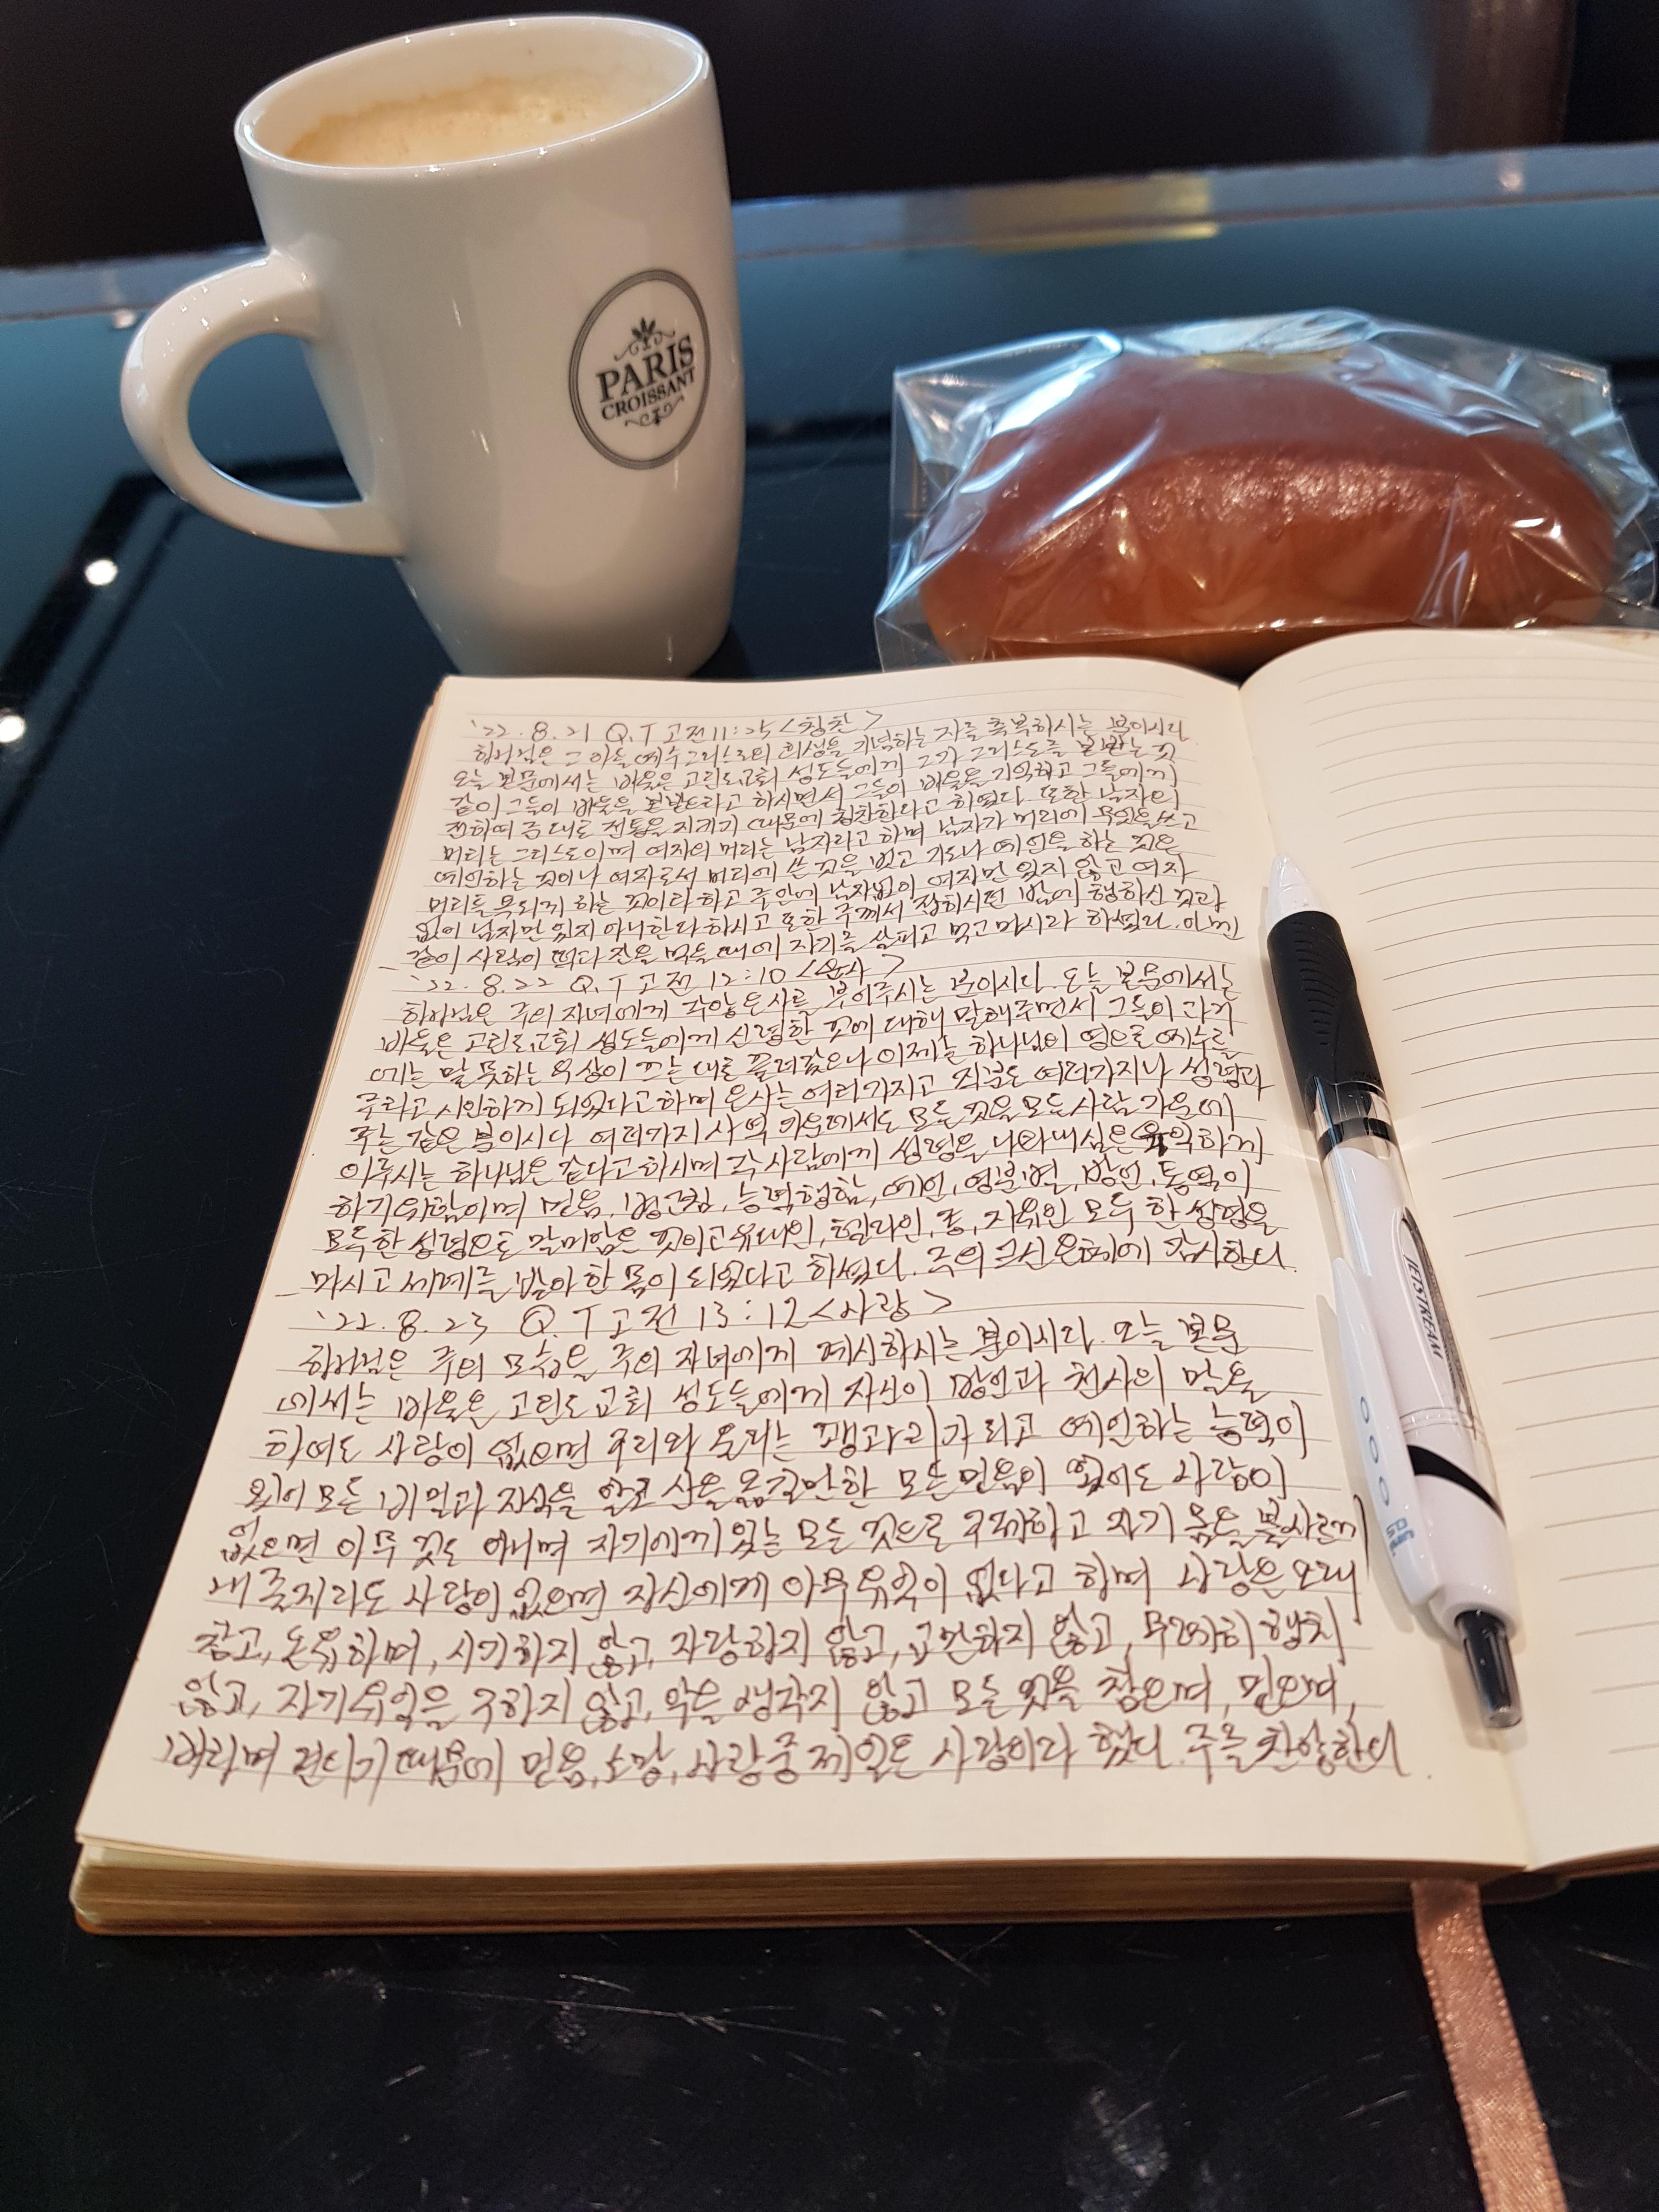 PARIS
CROISSANT
'22.8.21 Q.T 고전 11:25 <칭찬>
하나님은 그 아들 예수그리스도의 희생을 기념하는 자를 축복하시는 분이시다
오늘 본문에서는 바울은 고린도교회 성도들에게 그가 그리스도를 본받는 것
같이 그들이 바울을 본받으라고 하시면서 그들이 바울을 기억하고 그들에게
전하여 준대로 전통을 지키기 때문에 칭찬한다고 하였다. 또한 남자의
머리는 그리스도이며 여자의 머리는 남자라고 하며 남자가 머리에 무엇을 쓰고
예언하는 것이나 여자로서 머리에 쓴 것을 벗고 기도나 예언을 하는 것은
머리를 욕되게 하는 것이라 하고 주안에 남자없이 여자만 있지 않고 여자
없이 남자만 있지 아니한다 하시고 또한 주께서 잡히시던 밤에 행하신 것과
같이 사람이 떡과 잔을 먹을 때에 자기를 살피고 먹고 마시라 하셨다.
'22.8.22 Q.T 고전 12:10 <은사>
하나님은 주의 자녀에게 각양 은사를 부어주시는 분이시다. 오늘 본문에서는
바울은 고린도교회 성도들에게 신령한 것에 대해 말해주면서 그들이 과거
에는 말 못하는 우상이 끄는 대로 끌려갔으나 이제는 하나님의 영으로 예수를
주라고 시인하게 되었다고 하며 은사는 여러가지고 직분도 여러가지나 성령과
주는 같은 분이시다 여러가지 사역 가운데서도 모든 것을 모든 사람 가운데
이루시는 하나님은 같다고 하시며 각 사람에게 성령을 나타내심은 유익하게
하기 위함이며 믿음, 병고침, 능력행함, 예언, 영분별, 방언, 통역이
모두 한 성령으로 말미암은 것이고 유대인, 헬라인, 종, 자유인 모두 한 성령을
마시고 세례를 받아 한 몸이 되었다고 하셨다. 주의 크신 은혜에 감사한다.
'22.8.23 Q.T 고전 13:12 <사랑>
하나님은 주의 모습을 주의 자녀에게 계시하시는 분이시다. 오늘 본문
에서는 바울은 고린도교회 성도들에게 자신이 방언과 천사의 말을
하여도 사랑이 없으면 구리와 울리는 꽹과리가 되고 예언하는 능력이
있어 모든 비밀과 지식을 알고 산을 옮길만한 모든 믿음이 있어도 사랑이
없으면 아무 것도 아니며 자기에게 있는 모든 것으로 구제하고 자기 몸을 불사르게
내 줄지라도 사랑이 없으면 자신에게 아무 유익이 없다고 하며 사랑은 오래
참고, 온유하며, 시기하지 않고, 자랑하지 않고, 교만하지 않고, 무례히 행치
않고, 자기유익을 구하지 않고, 악을 생각지 않고 모든 것을 참으며, 믿으며,
바라며 견디기 때문에 믿음, 소망, 사랑중 제일은 사랑이라 했다. 주를 찬양한다.
JETSTREAM
uni
0.5